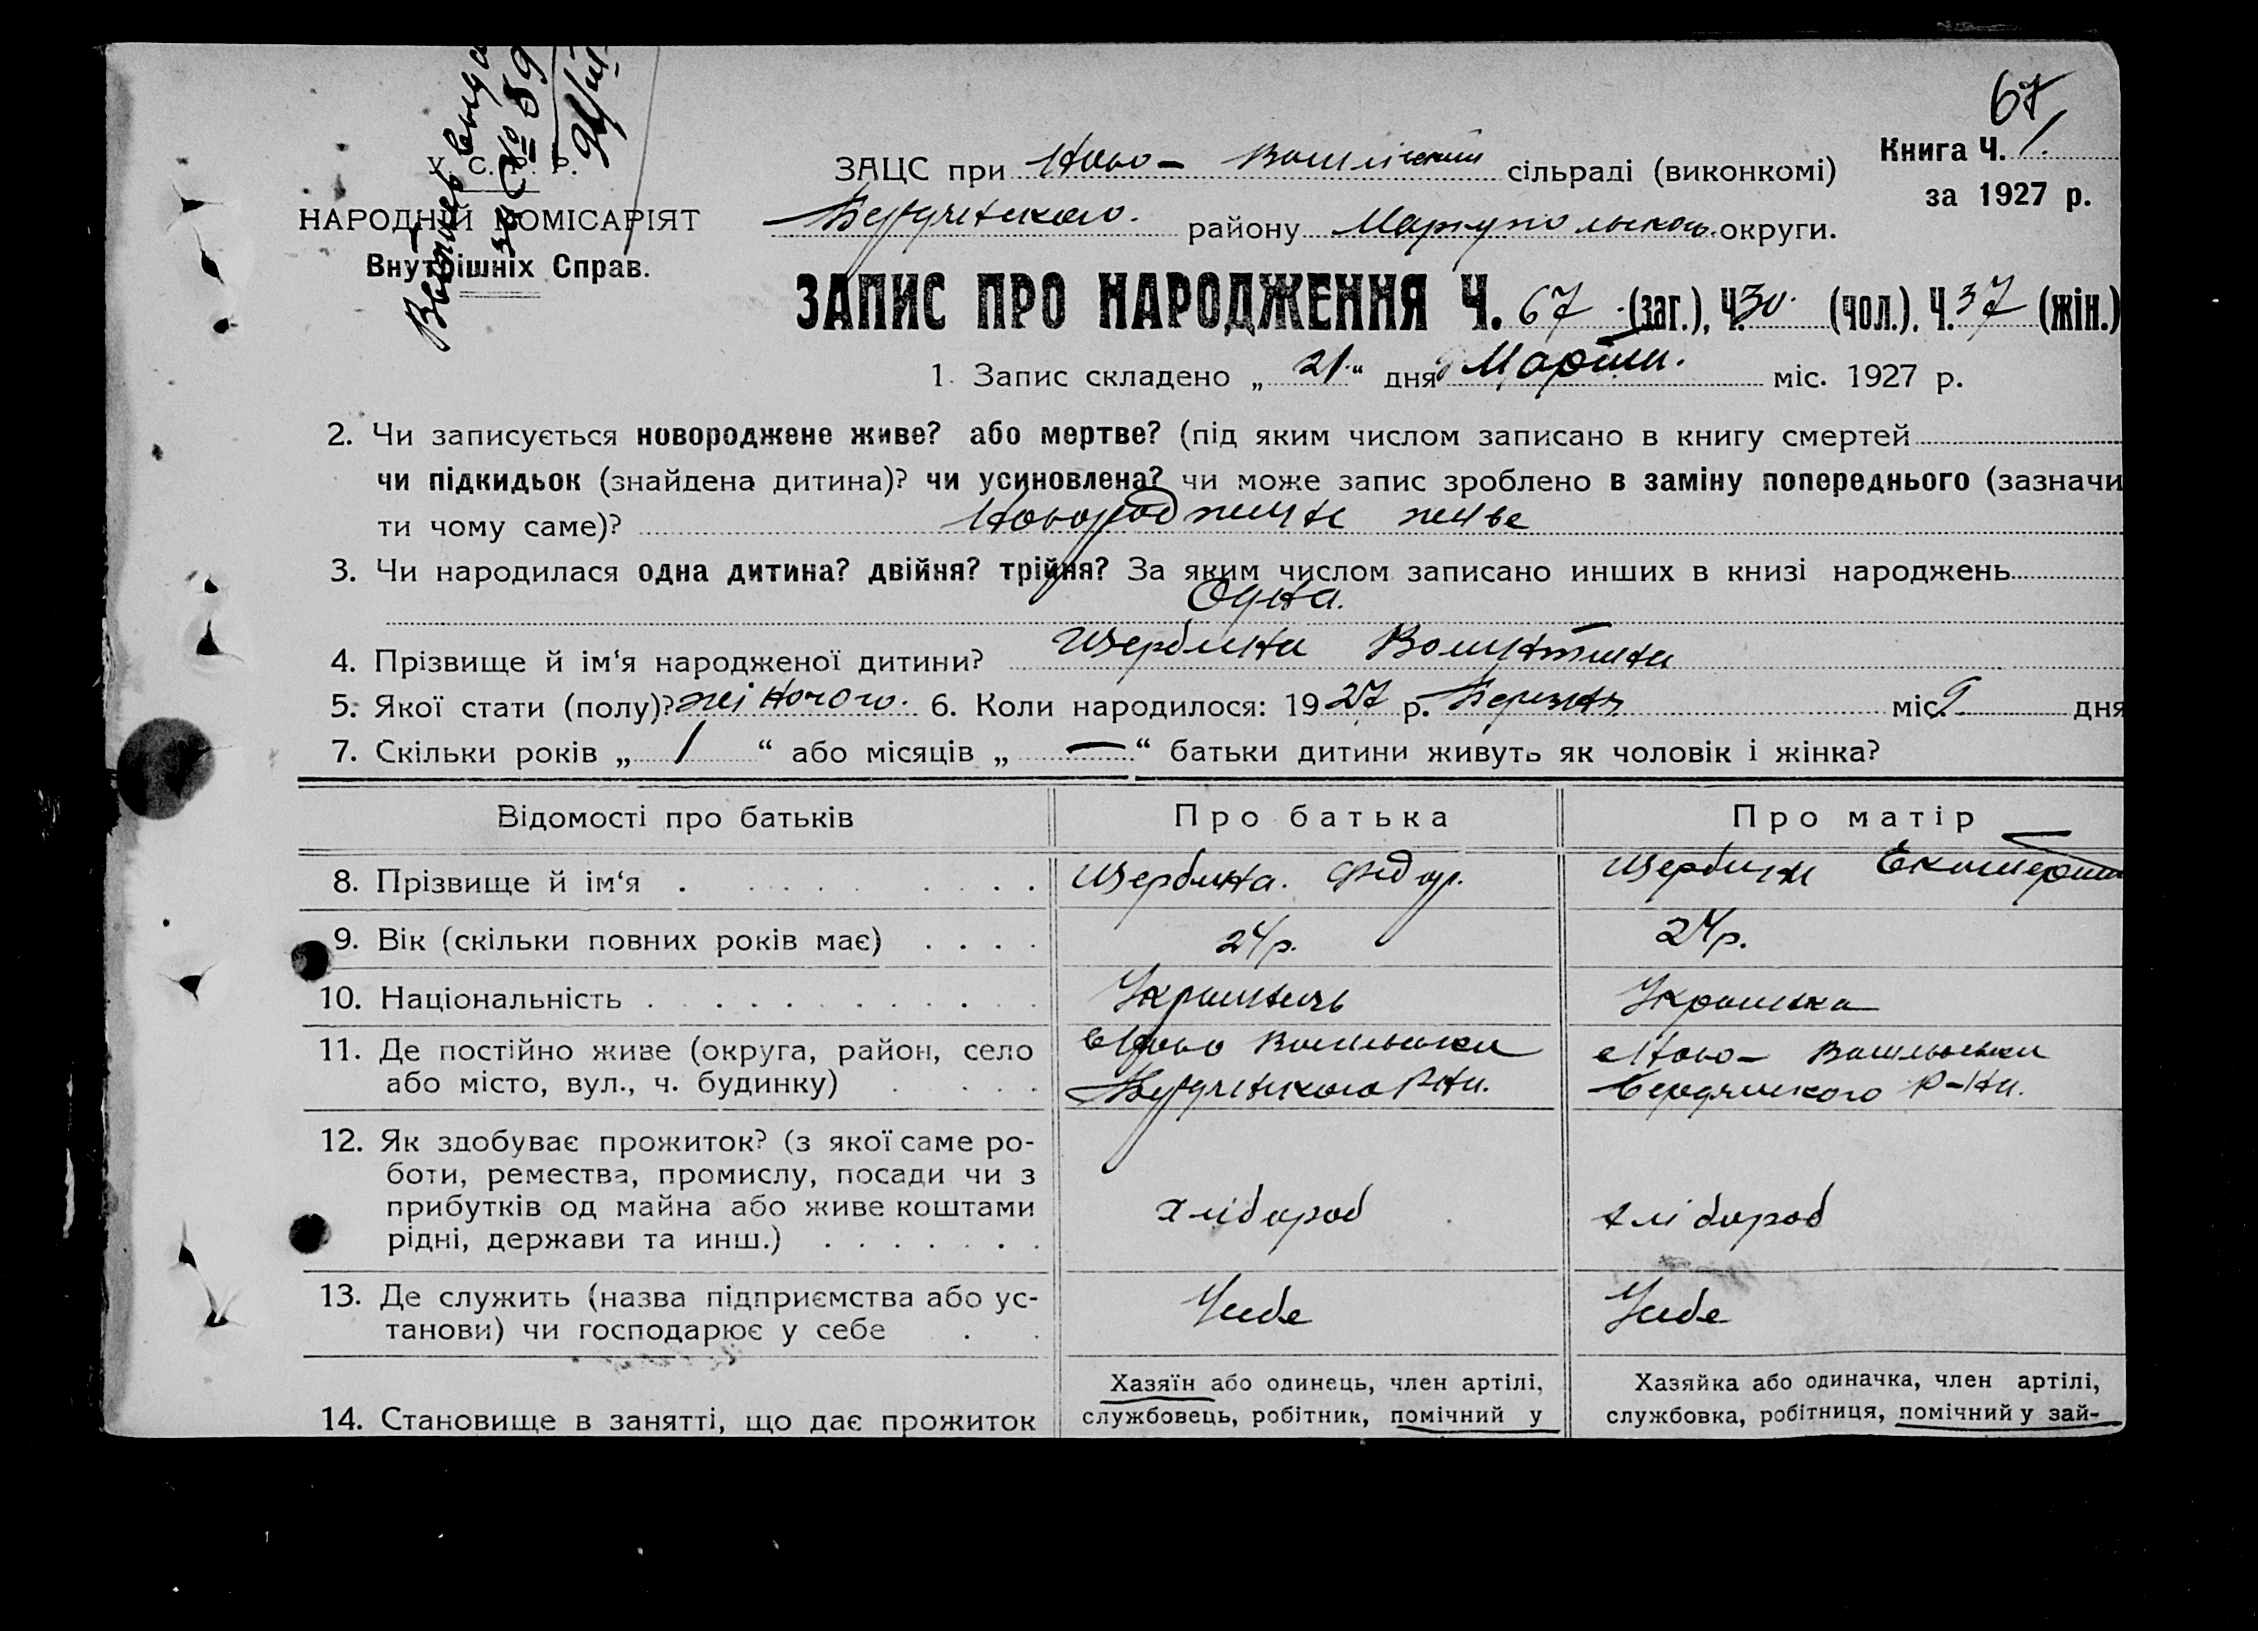 67
У. С. Р. Р.
НАРОДНІЙ КОМІСАРІЯТ
Внутрішніх Справ.
№ 59
ЗАЦС при Ново- сільраді (виконкомі)
Книга Ч. 1.
за 1927 р.
району Мариупольської округи.
ЗАПИС ПРО НАРОДЖЕННЯ Ч. 67 (заг.), Ч. 30 (чол.). Ч. 37 (жін.)
1. Запис складено „ 21 “ дня Марта міс. 1927 р.
2. Чи записується новороджене живе? або мертве? (під яким числом записано в книгу смертей
чи підкидьок (знайдена дитина)? чи усиновлена? чи може запис зроблено в заміну попереднього (зазначи
ти чому саме)? Новороджене живе
3. Чи народилася одна дитина? двійня? трійня? За яким числом записано инших в книзі народжень
Одна.
4. Прізвище й ім‘я народженої дитини? Щербина Валентина
5. Якої стати (полу)? жіночого. 6. Коли народилося: 1927 р. Березня міс. 9 дня
7. Скільки років „ 1 “ або місяців „ — “ батьки дитини живуть як чоловік і жінка?
Відомості про батьків Про батька Про матір
8. Прізвище й ім‘я Щербина. Федор. Щербина Екатерина
9. Вік (скільки повних років має) 24р. 24р.
10. Національність Українець Українка
11. Де постійно живе (округа, район, село
або місто, вул., ч. будинку)
Ново Васильовки
Бердянского Р-на.
Ново- Васильовки
Бердянского Р-на.
12. Як здобуває прожиток? (з якої саме ро-
боти, ремества, промислу, посади чи з
прибутків од майна або живе коштами
рідні, держави та инш.)
хлібороб хлібороб
13. Де служить (назва підприємства або ус-
танови) чи господарює у себе
У себе У себе
14. Становище в занятті, що дає прожиток
Хазяїн або одинець, член артілі,
службовець, робітник, помічний у
Хазяйка або одиначка, член артілі,
службовка, робітниця, помічний у зай-